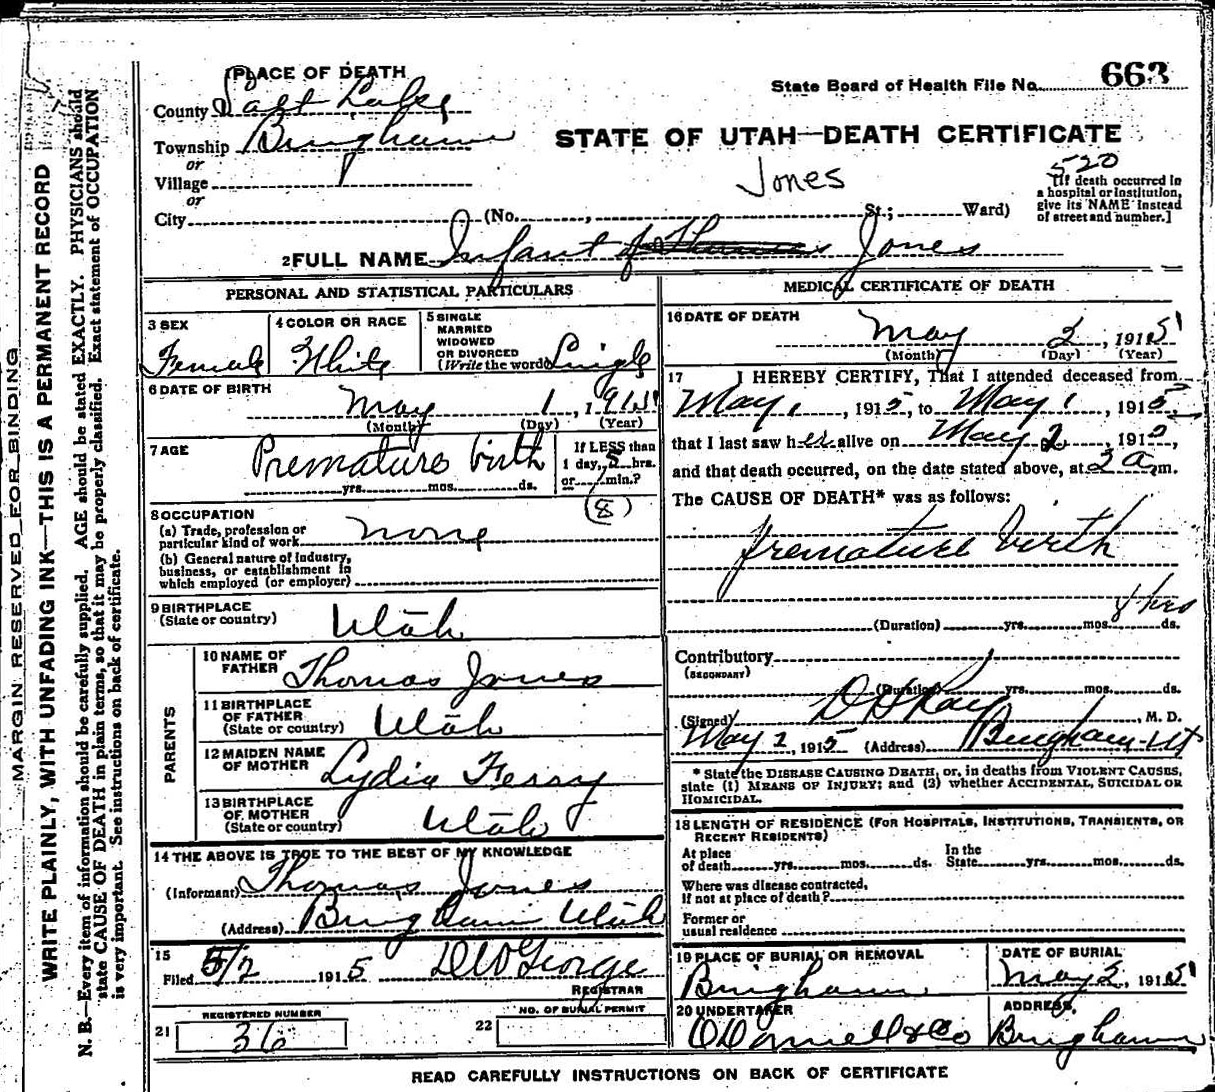 MARGIN RESERVED FOR BINDING
WRITE PLAINLY, WITH UNFADING INK—THIS IS A PERMANENT RECORD
N. B.—Every item of information should be carefully supplied. AGE should be stated EXACTLY. PHYSICIANS should
state CAUSE OF DEATH in plain terms, so that it may be properly classified. Exact statement of OCCUPATION
is very important. See instructions on back of certificate.
PLACE OF DEATH
State Board of Health File No. 663
County Salt Lake
STATE OF UTAH—DEATH CERTIFICATE
Township Bingham
or
Village
Jones
520
[If death occurred in
a hospital or institution,
give its NAME instead
of street and number.]
or
City (No. , St.; Ward)
2 FULL NAME Infant of Thomas Jones
PERSONAL AND STATISTICAL PARTICULARS
3 SEX
Female
4 COLOR OR RACE
White
5 SINGLE
MARRIED
WIDOWED
OR DIVORCED
(Write the word) Single
6 DATE OF BIRTH
May 1, 1915
(Month) (Day) (Year)
7 AGE
Premature birth
yrs. mos. ds.
If LESS than
1 day, 5 hrs.
or min.?
(8)
8 OCCUPATION
(a) Trade, profession or
particular kind of work none
(b) General nature of industry,
business, or establishment in
which employed (or employer)
9 BIRTHPLACE
(State or country) Utah
PARENTS
10 NAME OF
FATHER Thomas Jones
11 BIRTHPLACE
OF FATHER
(State or country) Utah
12 MAIDEN NAME
OF MOTHER Lydia Ferry
13 BIRTHPLACE
OF MOTHER
(State or country) Utah
14 THE ABOVE IS TRUE TO THE BEST OF MY KNOWLEDGE
(Informant) Thomas Jones
(Address) Bingham Utah
15
Filed 5/2 1915 George
REGISTRAR
21 REGISTERED NUMBER
36
22 NO. OF BURIAL PERMIT
MEDICAL CERTIFICATE OF DEATH
16 DATE OF DEATH
May 2, 1915
(Month) (Day) (Year)
17 I HEREBY CERTIFY, That I attended deceased from
May 1, 1915, to May 1, 1915,
that I last saw her alive on May 2, 191
and that death occurred, on the date stated above, at 2 a.m.
The CAUSE OF DEATH* was as follows:
Premature birth
8 hrs
(Duration) yrs. mos. ds.
Contributory
(SECONDARY)
(Duration) yrs. mos. ds.
(Signed) D H Ray, M. D.
May 2, 1915 (Address) Bingham Ut
* State the DISEASE CAUSING DEATH, or, in deaths from VIOLENT CAUSES,
state (1) MEANS OF INJURY; and (2) whether ACCIDENTAL, SUICIDAL OR
HOMICIDAL.
18 LENGTH OF RESIDENCE (FOR HOSPITALS, INSTITUTIONS, TRANSIENTS, OR
RECENT RESIDENTS)
At place
of death yrs. mos. ds.
In the
State yrs. mos. ds.
Where was disease contracted,
if not at place of death?
Former or
usual residence
19 PLACE OF BURIAL OR REMOVAL
Bingham
DATE OF BURIAL
May 2, 1915
20 UNDERTAKER
O'Donnell & Co
ADDRESS,
Bingham
READ CAREFULLY INSTRUCTIONS ON BACK OF CERTIFICATE